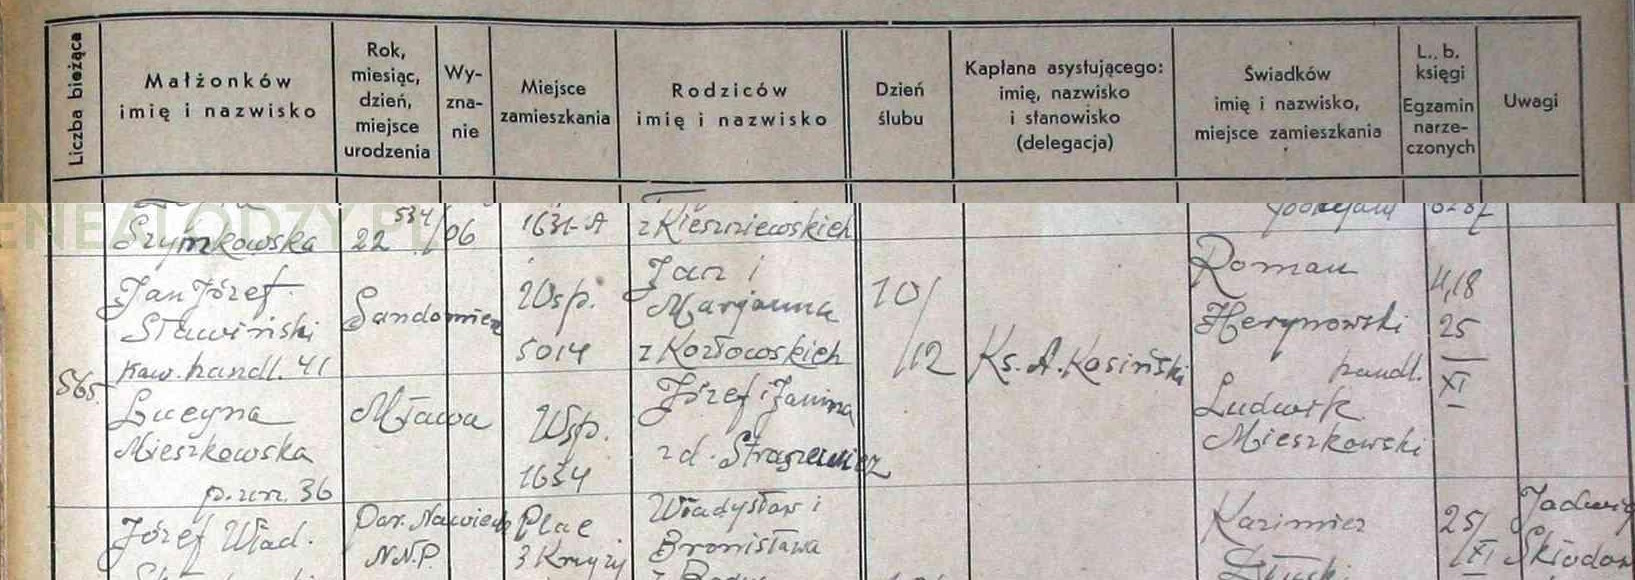 Liczba bieżąca
Małżonków
imię i nazwisko
Rok,
miesiąc,
dzień,
miejsce
urodzenia
Wy-
zna-
nie
Miejsce
zamieszkania
Rodziców
imię i nazwisko
Dzień
ślubu
Kapłana asystującego:
imię, nazwisko
i stanowisko
(delegacja)
Świadków
imię i nazwisko,
miejsce zamieszkania
L. b.
księgi
Egzamin
narze-
czonych
Uwagi
ENEALODZY.P
Szymkowska
534/
22 /06
1631-A
z Kleszniewskich
565.
Jan Józef
Sławiński
kaw. handl. 41
Sandomierz
Wsp.
5014
Jan i
Marjanna
z Kozłowskich
10/
/12
Ks. A. Kosiński
Roman
handl.
4,18
25
XI
Lucyna
Mieszkowska
p. urz. 36
Mława
Wsp.
1634
Józef i Janina
z d. Straszewicz
Ludwik
Mieszkowski
Józef Wład.
Par. Nawiedz
N.N.P.
Plac
3 Krzyży
Władysław i
Bronisława
Kazimierz
25/
/XI
Jadwig
Skłodow